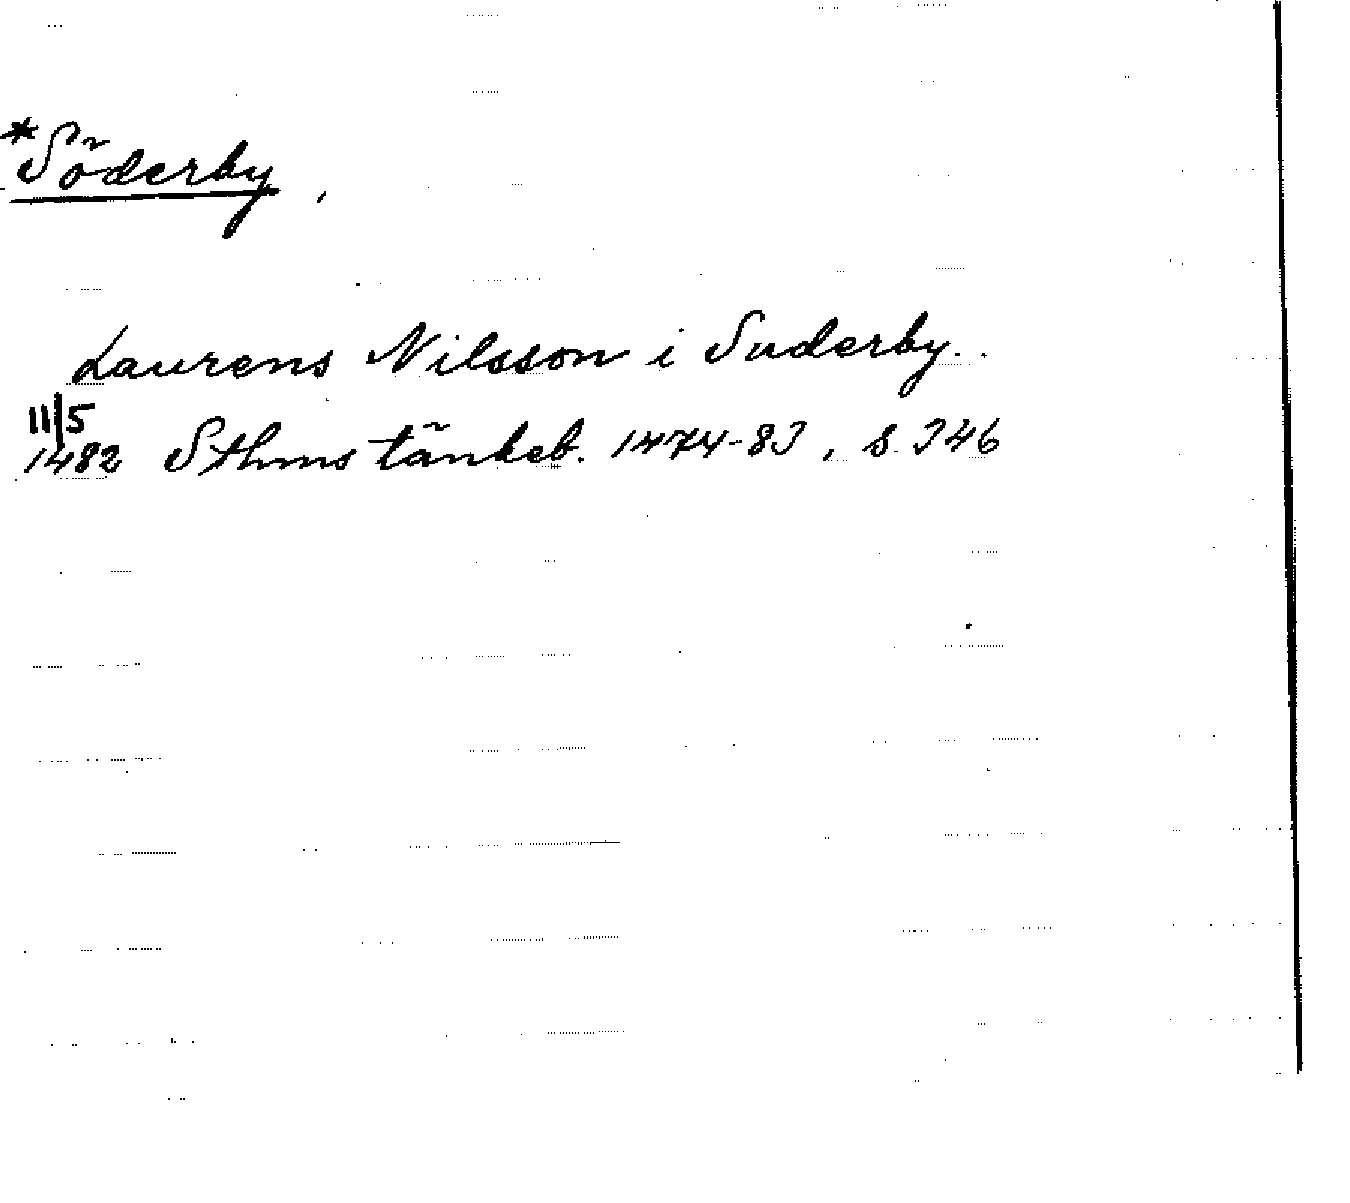 *Söderby,
Laurens Nilsson i Suderby.
11/5
1482 Sthms tänkeb. 1474-83, s. 346